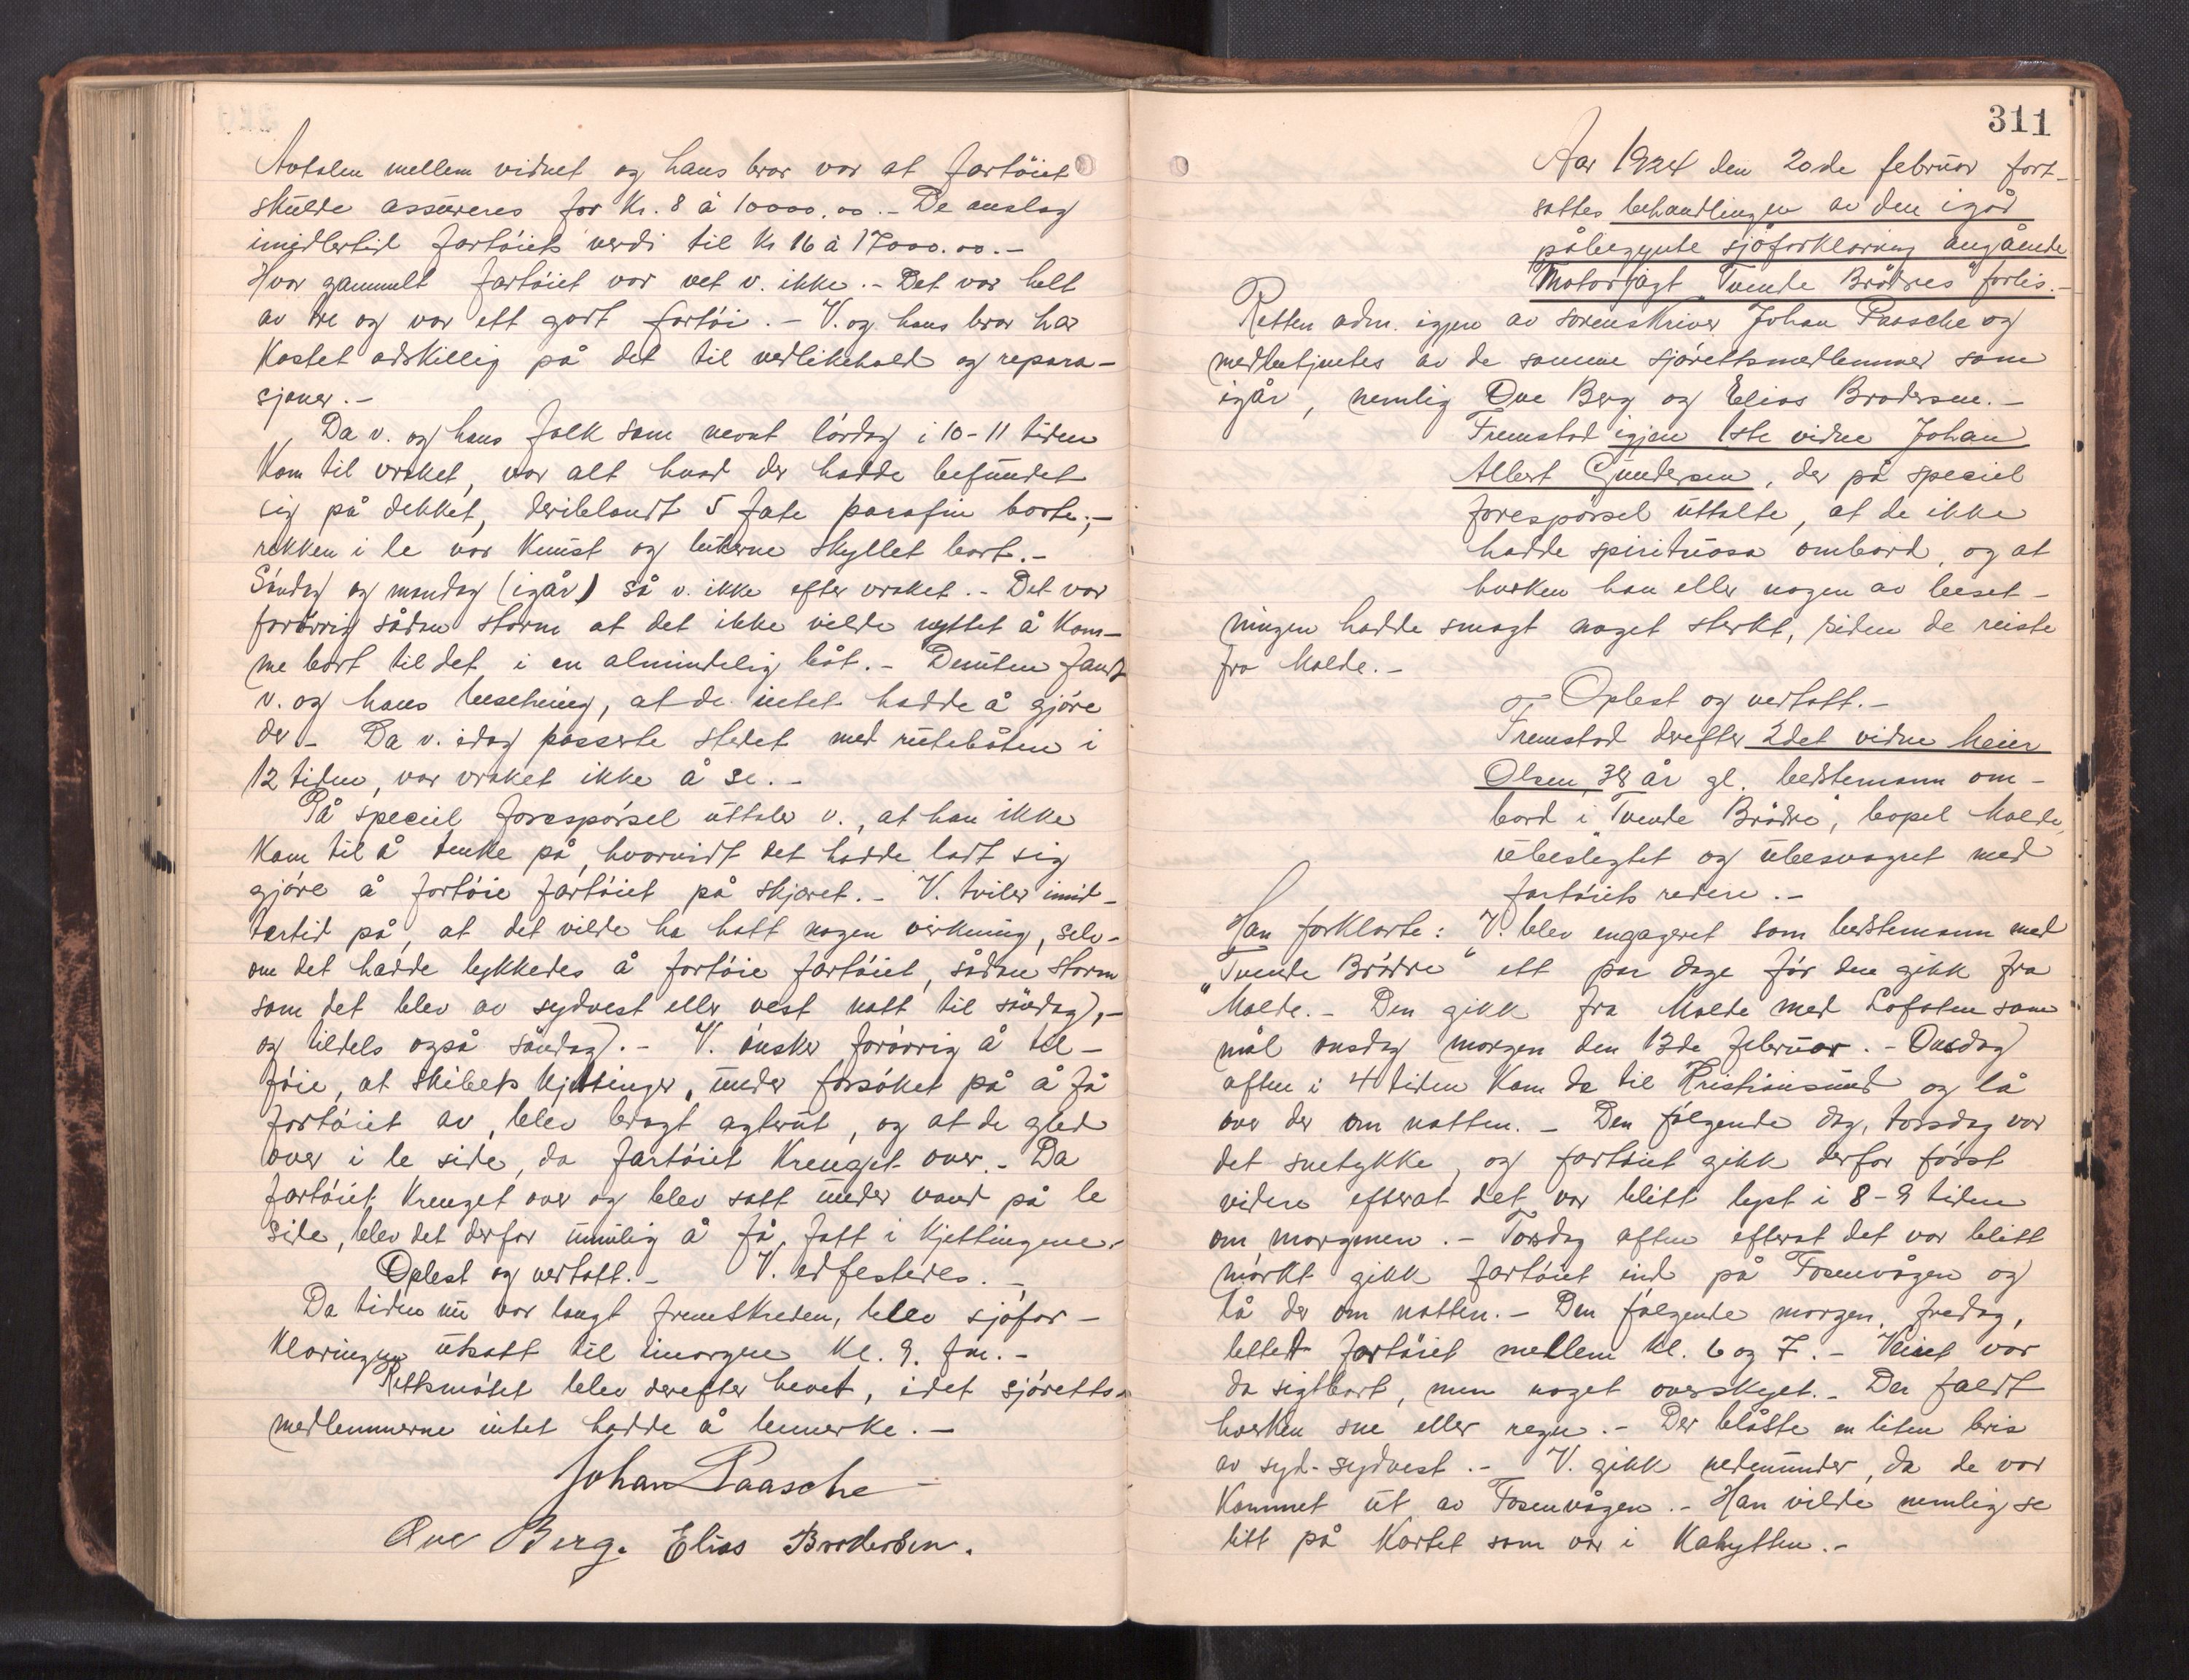 Avtalen mellem vidnet og hans bror var at fartöiet
skulde assureres for Kr. 8 à 10000.00.- De anslog
imidlertid fartöiets verdi til Kr 16 à 17000.00.-
Hvor gammelt fartöiet var vet v. ikke.- Det var helt
av tre og var ett godt fartöi.- V. og hans bror har
kostet adskillig på det til vedlikehold og repara-
sjoner.-
Da v. og hans folk som nevnt lördag i 10-11 tiden
kom til vraket, var alt hvad der hadde befundet
sig på dekket, deriblandt 5 fate parafin borte;-
rekken i le var knust og lukerne skyllet bort.-
Söndag og mandag (igår) så v. ikke efter vraket.- Det var
forövrig sådan storm at det ikke vilde nyttet å kom-
me bort til det i en almindelig båt.- Desuten fandt
v. og hans besetning, at de intet hadde å gjöre
der.- Da v. idag passerte stedet med rutebåten i
12 tiden, var vraket ikke å se.-
På speciel forespörsel uttaler v., at han ikke
kom til å tenke på, hvorvidt det hadde latt sig
gjöre å fortöie fartöiet på skjæret.- V. tviler imid-
lertid på, at det vilde ha hatt nogen virkning, selv-
om det hadde lykkedes å fortöie fartöiet, sådan storm
som det blev av sydvest eller vest natt til söndag,-
og tildels også söndag.- V. önsker forövrig å til-
föie, at skibets kjettinger, under forsöket på å få
fartöiet av, blev bragt agterut, og at de gled
over i le side, da fartöiet krenget over.- Da
fartöiet krenget over og blev satt under vand på le
side, blev det derfor umulig å få fatt i kjettingene.
Oplest og vertatt.- V. edfestedes.-
Da tiden nu var langt fremskreden, blev sjöfor-
klaringen utsatt til imorgen kl. 9. fm.-
Rettsmötet blev derefter hevet, idet sjöretts-
medlemmerne intet hadde å bemerke.-
Johan Paasche
Ove Berg. Elias Brodersen.
311
Aar 1924 den 20de februar fort-
sattes behandlingen av den igår
påbegynte sjöforklaring angående
Motorjagt "Tvende Brödres" forlis.-
Retten adm. igjen av sorenskriver Johan Paasche og
medbetjentes av de samme sjörettsmedlemmer som
igår, nemlig Ove Berg og Elias Brodersen.-
Fremstod igjen 1ste vidne Johan
Albert Gundersen, der på speciel
forespörsel uttalte, at de ikke
hadde spirituosa ombord, og at
hverken han eller nogen av beset-
ningen hadde smagt noget sterkt, siden de reiste
fra Molde.-
Oplest og vertatt.-
Fremstod derefter 2det vidne Meier
Olsen, 38 år gl. bedstemann om-
bord i "Tvende Brödre", bopel Molde,
ubeslegtet og ubesvogret med
fartöiets redere.-
Han forklarte: V. blev engageret som bedstemann med
"Tvende Brödre" ett par dage för den gikk fra
Molde.- Den gikk fra Molde med Lofoten som
mål onsdag morgen den 13de februar.- Onsdag
aften i 4 tiden kom de til Kristiansund og lå
over der om natten.- Den fölgende dag, torsdag var
det snetykke, og fartöiet gikk derfor först
videre efterat det var blitt lyst i 8-9 tiden
om morgenen.- Torsdag aften efterat det var blitt
mörkt gikk fartöiet ind på Fosenvågen og
lå der om natten.- Den fölgende morgen, fredag,
lettet fartöiet mellem kl. 6 og 7.- Veiret var
da sigtbart, men noget overskyet.- Der faldt
hverken sne eller regn.- Der blåste en liten bris
av syd-sydvest.- V. gikk nedenunder, da de var
kommet ut av Fosenvågen.- Han vilde nemlig se
litt på kartet som var i kahytten.-